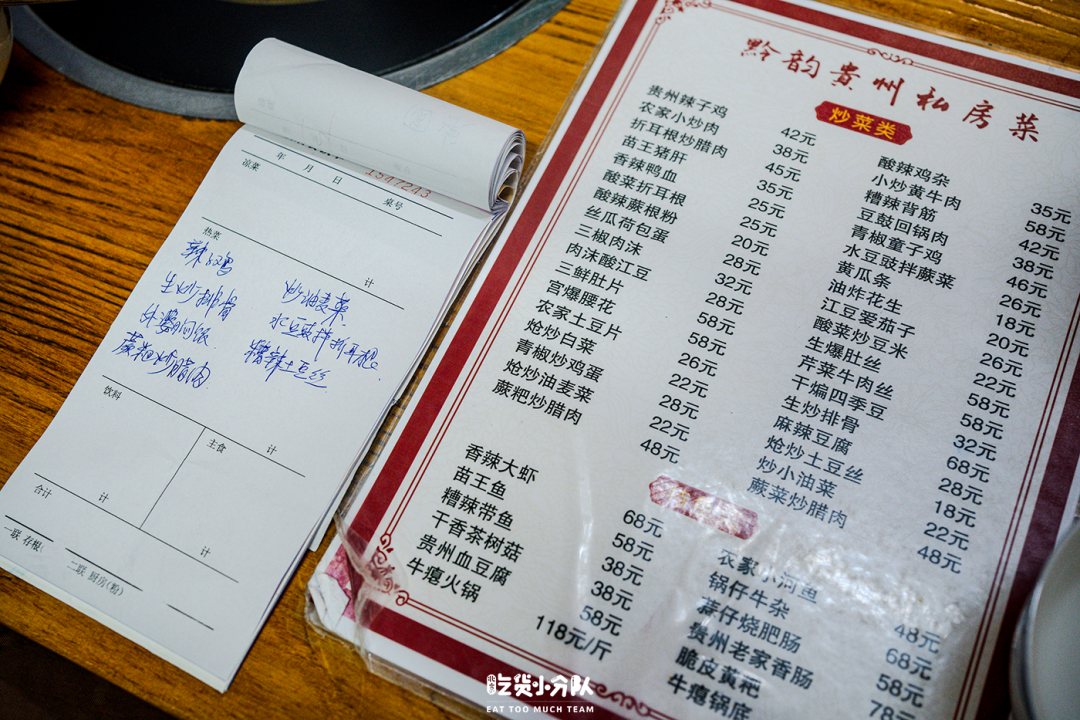 年 月 日
1547243
凉菜
桌号
热菜
计
辣子鸡
生炒排骨
外婆焖饭
蕨粑炒腊肉
炒油麦菜
水豆豉拌折耳根
糟辣土豆丝
饮料
计
主食
计
合计
计
一联 存根:
二联 厨房(粉)
黔韵贵州私房菜
炒菜类
贵州辣子鸡 42元
农家小炒肉 38元
折耳根炒腊肉 45元
苗王猪肝 35元
香辣鸭血 25元
酸菜折耳根 25元
酸辣蕨根粉 20元
丝瓜荷包蛋 28元
三椒肉沫 32元
肉沫酸江豆 28元
三鲜肚片 58元
宫爆腰花 58元
农家土豆片 26元
炝炒白菜 22元
青椒炒鸡蛋 28元
炝炒油麦菜 22元
蕨粑炒腊肉 48元
酸辣鸡杂 35元
小炒黄牛肉 58元
糟辣背筋 42元
豆鼓回锅肉 38元
青椒童子鸡 46元
水豆豉拌蕨菜 26元
黄瓜条 18元
油炸花生 20元
江豆爱茄子 26元
酸菜炒豆米 22元
生爆肚丝 58元
芹菜牛肉丝 58元
干煸四季豆 32元
生炒排骨 68元
麻辣豆腐 28元
炝炒土豆丝 18元
炒小油菜 22元
蕨菜炒腊肉 48元
香辣大虾 68元
苗王鱼 58元
糟辣带鱼 38元
干香茶树菇 38元
贵州血豆腐 58元
牛瘪火锅 118元/斤
农家小河鱼 48元
锅仔牛杂 68元
蒜仔烧肥肠 58元
贵州老家香肠 78元
脆皮黄粑
牛瘪锅底
吃货小分队
EAT TOO MUCH TEAM